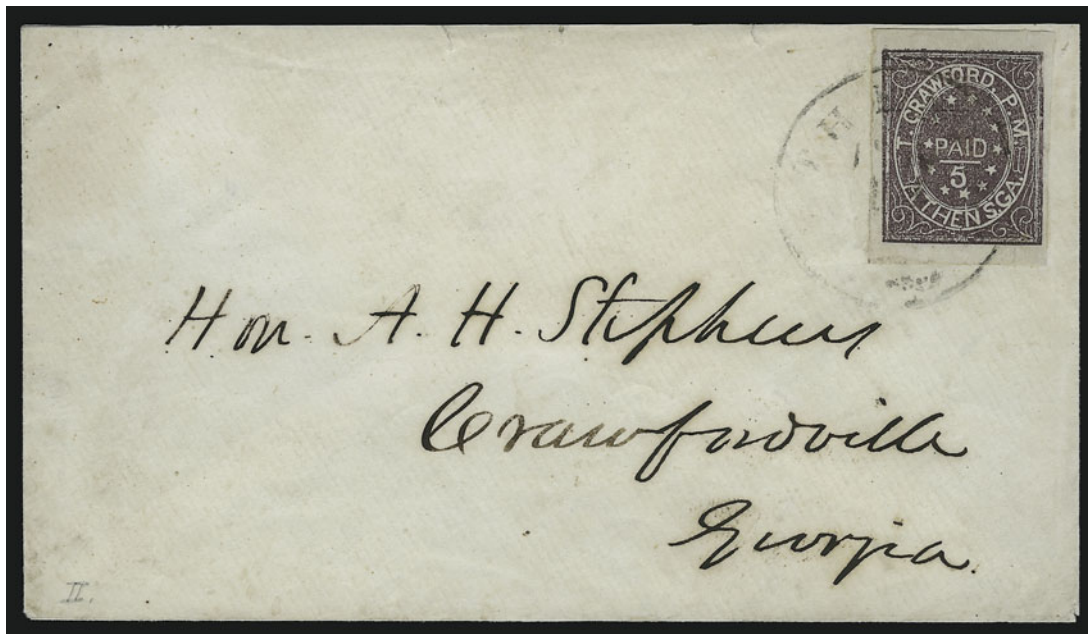 T. CRAWFORD, P. M.
PAID
5
ATHENS. GA.
Hon. A. H. Stephens
Crawfordville
Georgia.
II.